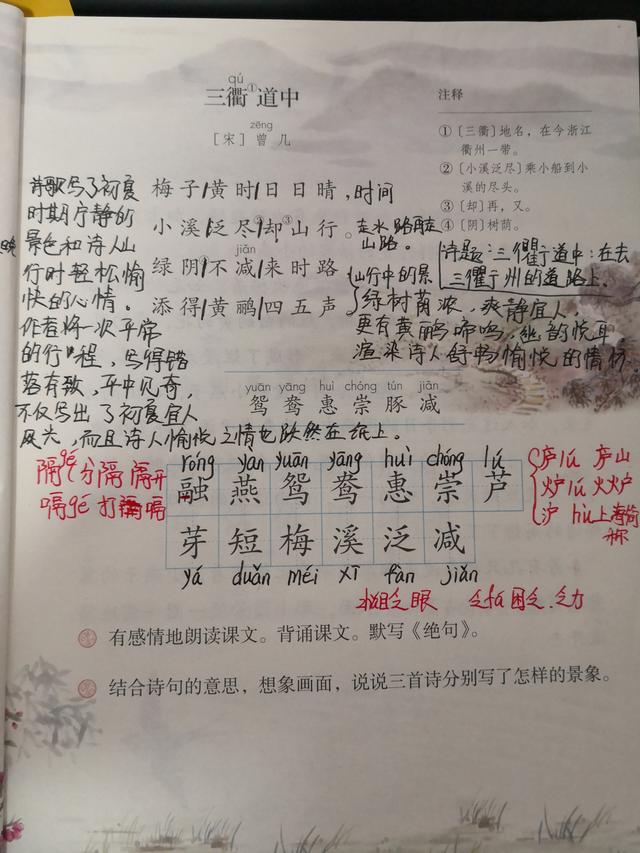 qú
三衢①道中
zēng
[宋] 曾 几
注释
①〔三衢〕地名，在今浙江
衢州一带。
②〔小溪泛尽〕乘小船到小
溪的尽头。
③〔却〕再，又。
④〔阴〕树荫。
梅子/黄时/日日晴，时间
小溪/泛尽②/却③/山行。走水路再走
山路。
jiān
绿阴④不减/来时路
添得/黄鹂/四五声
诗题：三衢道中：在去
三衢州的道路上。
山行中的景
绿树荫浓，爽静宜人，
更有黄鹂啼鸣，幽韵悦耳，
渲染诗人舒畅愉悦的情怀
诗歌写了初夏
时期宁静的
景色和诗人山
行时轻松愉
快的心情。
作者将一次平常
的行程，写得错
落有致，平中见奇，
不仅写出了初夏宜人
风光，而且诗人愉悦之情也跃然在纸上。
yuān yāng huì chóng tún jiǎn
鸳 鸯 惠 崇 豚 减
隔gé分隔 隔开
嗝gé 打嗝
róng yan yuān yāng huì chóng lú
融 燕 鸳 鸯 惠 崇 芦
芽 短 梅 溪 泛 减
yá duǎn méi xī fàn jiǎn
庐lú 庐山
炉lú 火炉
沪 hù上海简
称
乏 困乏 乏力
有感情地朗读课文。背诵课文。默写《绝句》。
结合诗句的意思，想象画面，说说三首诗分别写了怎样的景象。